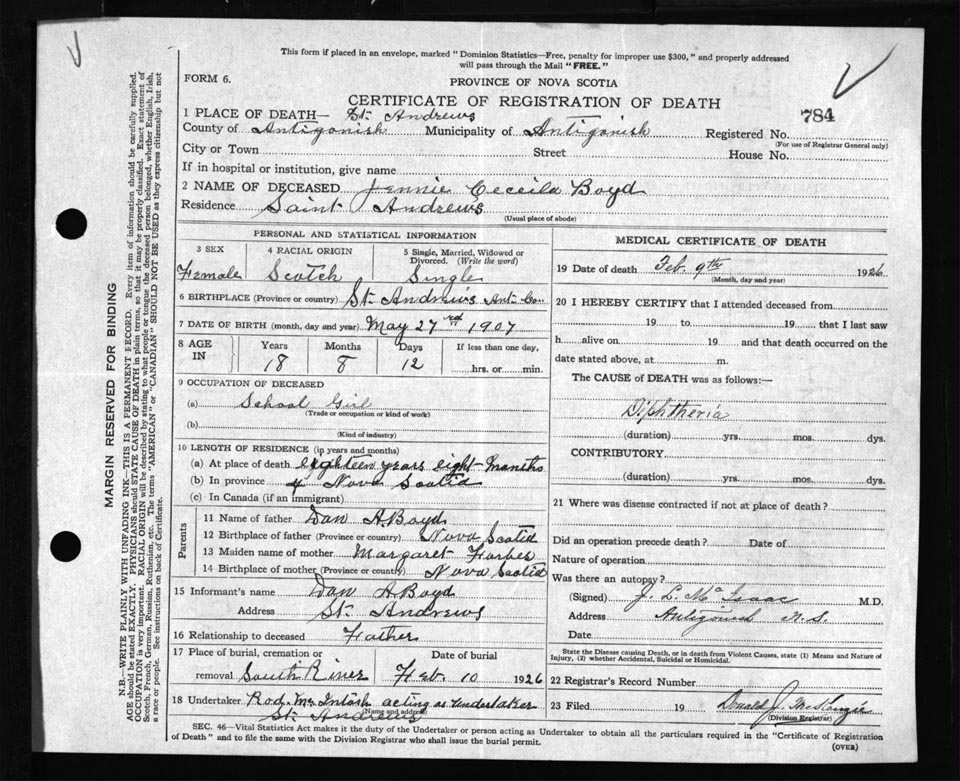 This form if placed in an envelope, marked "Dominion Statistics—Free, penalty for improper use $300," and properly addressed
will pass through the Mail "FREE."
FORM 6.
PROVINCE OF NOVA SCOTIA
CERTIFICATE OF REGISTRATION OF DEATH
784
1 PLACE OF DEATH— St. Andrews
County of Antigonish Municipality of Antigonish Registered No.
(For use of Registrar General only)
City or Town Street House No.
If in hospital or institution, give name
2 NAME OF DECEASED Jennie Ceceila Boyd
Residence Saint Andrews
(Usual place of abode)
PERSONAL AND STATISTICAL INFORMATION
3 SEX 4 RACIAL ORIGIN 5 Single, Married, Widowed or Divorced. (Write the word)
Female Scotch Single
6 BIRTHPLACE (Province or country) St. Andrews Ant. Co.
7 DATE OF BIRTH (month, day and year) May 27rd 1907
8 AGE IN Years Months Days If less than one day,
18 8 12 hrs. or min.
9 OCCUPATION OF DECEASED
(a) School Girl
(Trade or occupation or kind of work)
(b)
(Kind of industry)
10 LENGTH OF RESIDENCE (in years and months)
(a) At place of death eighteen years eight Months
(b) In province Nova Scotia
(c) In Canada (if an immigrant)
Parents
11 Name of father Dan A Boyd
12 Birthplace of father (Province or country) Nova Scotia
13 Maiden name of mother Margaret Forbes
14 Birthplace of mother (Province or country) Nova Scotia
15 Informant's name Dan A Boyd
Address St. Andrews
16 Relationship to deceased Father
17 Place of burial, cremation or removal South River Date of burial Feb. 10 1926
18 Undertaker Rod. McIntosh acting as Undertaker
St. Andrews
(Name and address)
MEDICAL CERTIFICATE OF DEATH
19 Date of death Feb. 9th 1926
(Month, day and year)
20 I HEREBY CERTIFY that I attended deceased from
19 to 19 that I last saw
h alive on 19 and that death occurred on the
date stated above, at m.
The CAUSE of DEATH was as follows:—
Diphtheria
(duration) yrs. mos. dys.
CONTRIBUTORY
(duration) yrs. mos. dys.
21 Where was disease contracted if not at place of death?
Did an operation precede death? Date of
Nature of operation
Was there an autopsy?
(Signed) J. L. McIsaac M.D.
Address Antigonish N.S.
Date
State the Disease causing Death, or in death from Violent Causes, state (1) Means and Nature of
Injury, (2) whether Accidental, Suicidal or Homicidal.
22 Registrar's Record Number
23 Filed 19 Donald J. McKenzie
(Division Registrar)
SEC. 46—Vital Statistics Act makes it the duty of the Undertaker or person acting as Undertaker to obtain all the particulars required in the "Certificate of Registration
of Death" and to file the same with the Division Registrar who shall issue the burial permit.
(OVER)
MARGIN RESERVED FOR BINDING
N.B.—WRITE PLAINLY WITH UNFADING INK—THIS IS A PERMANENT RECORD. Every item of information should be carefully supplied.
AGE should be stated EXACTLY. PHYSICIANS should STATE CAUSE OF DEATH in plain terms, so that it may be properly classified. Exact statement of
OCCUPATION is very important. RACIAL ORIGIN will be described by stating to what people or tongue the deceased person belonged, whether English, Irish,
Scotch, French, German, Russian, Ruthenian, etc. The terms "AMERICAN" or "CANADIAN" SHOULD NOT BE USED as they express citizenship but not
a race or people. See instructions on back of Certificate.